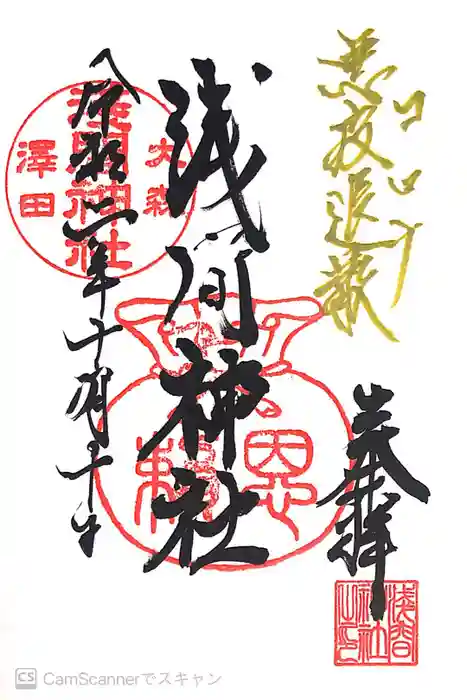 コロナ
悪疫退散
奉拝
浅間神社
令和二年
大森
淺間神社
澤田
恩
浅間
神社
之印
CS CamScannerでスキャン